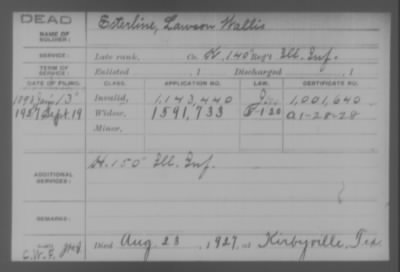 DEAD
NAME OF SOLDIER: Esterline, Lawson Wallis
SERVICE: Late rank, Co. H, 140 Reg't Ill. Inf.
TERM OF SERVICE: Enlisted , 1 Discharged , 1
DATE OF FILING. CLASS. APPLICATION NO. LAW. CERTIFICATE NO.
1893 Jan. 13 Invalid, 1,143,440 1,001,640
1927 Sept. 19 Widow, 1591,733 a1-28-28
Minor,
ADDITIONAL SERVICES: H. 150 Ill. Inf.
REMARKS:
C.W.F. Died Aug 23, 1927, at Kirbyville, Tex.